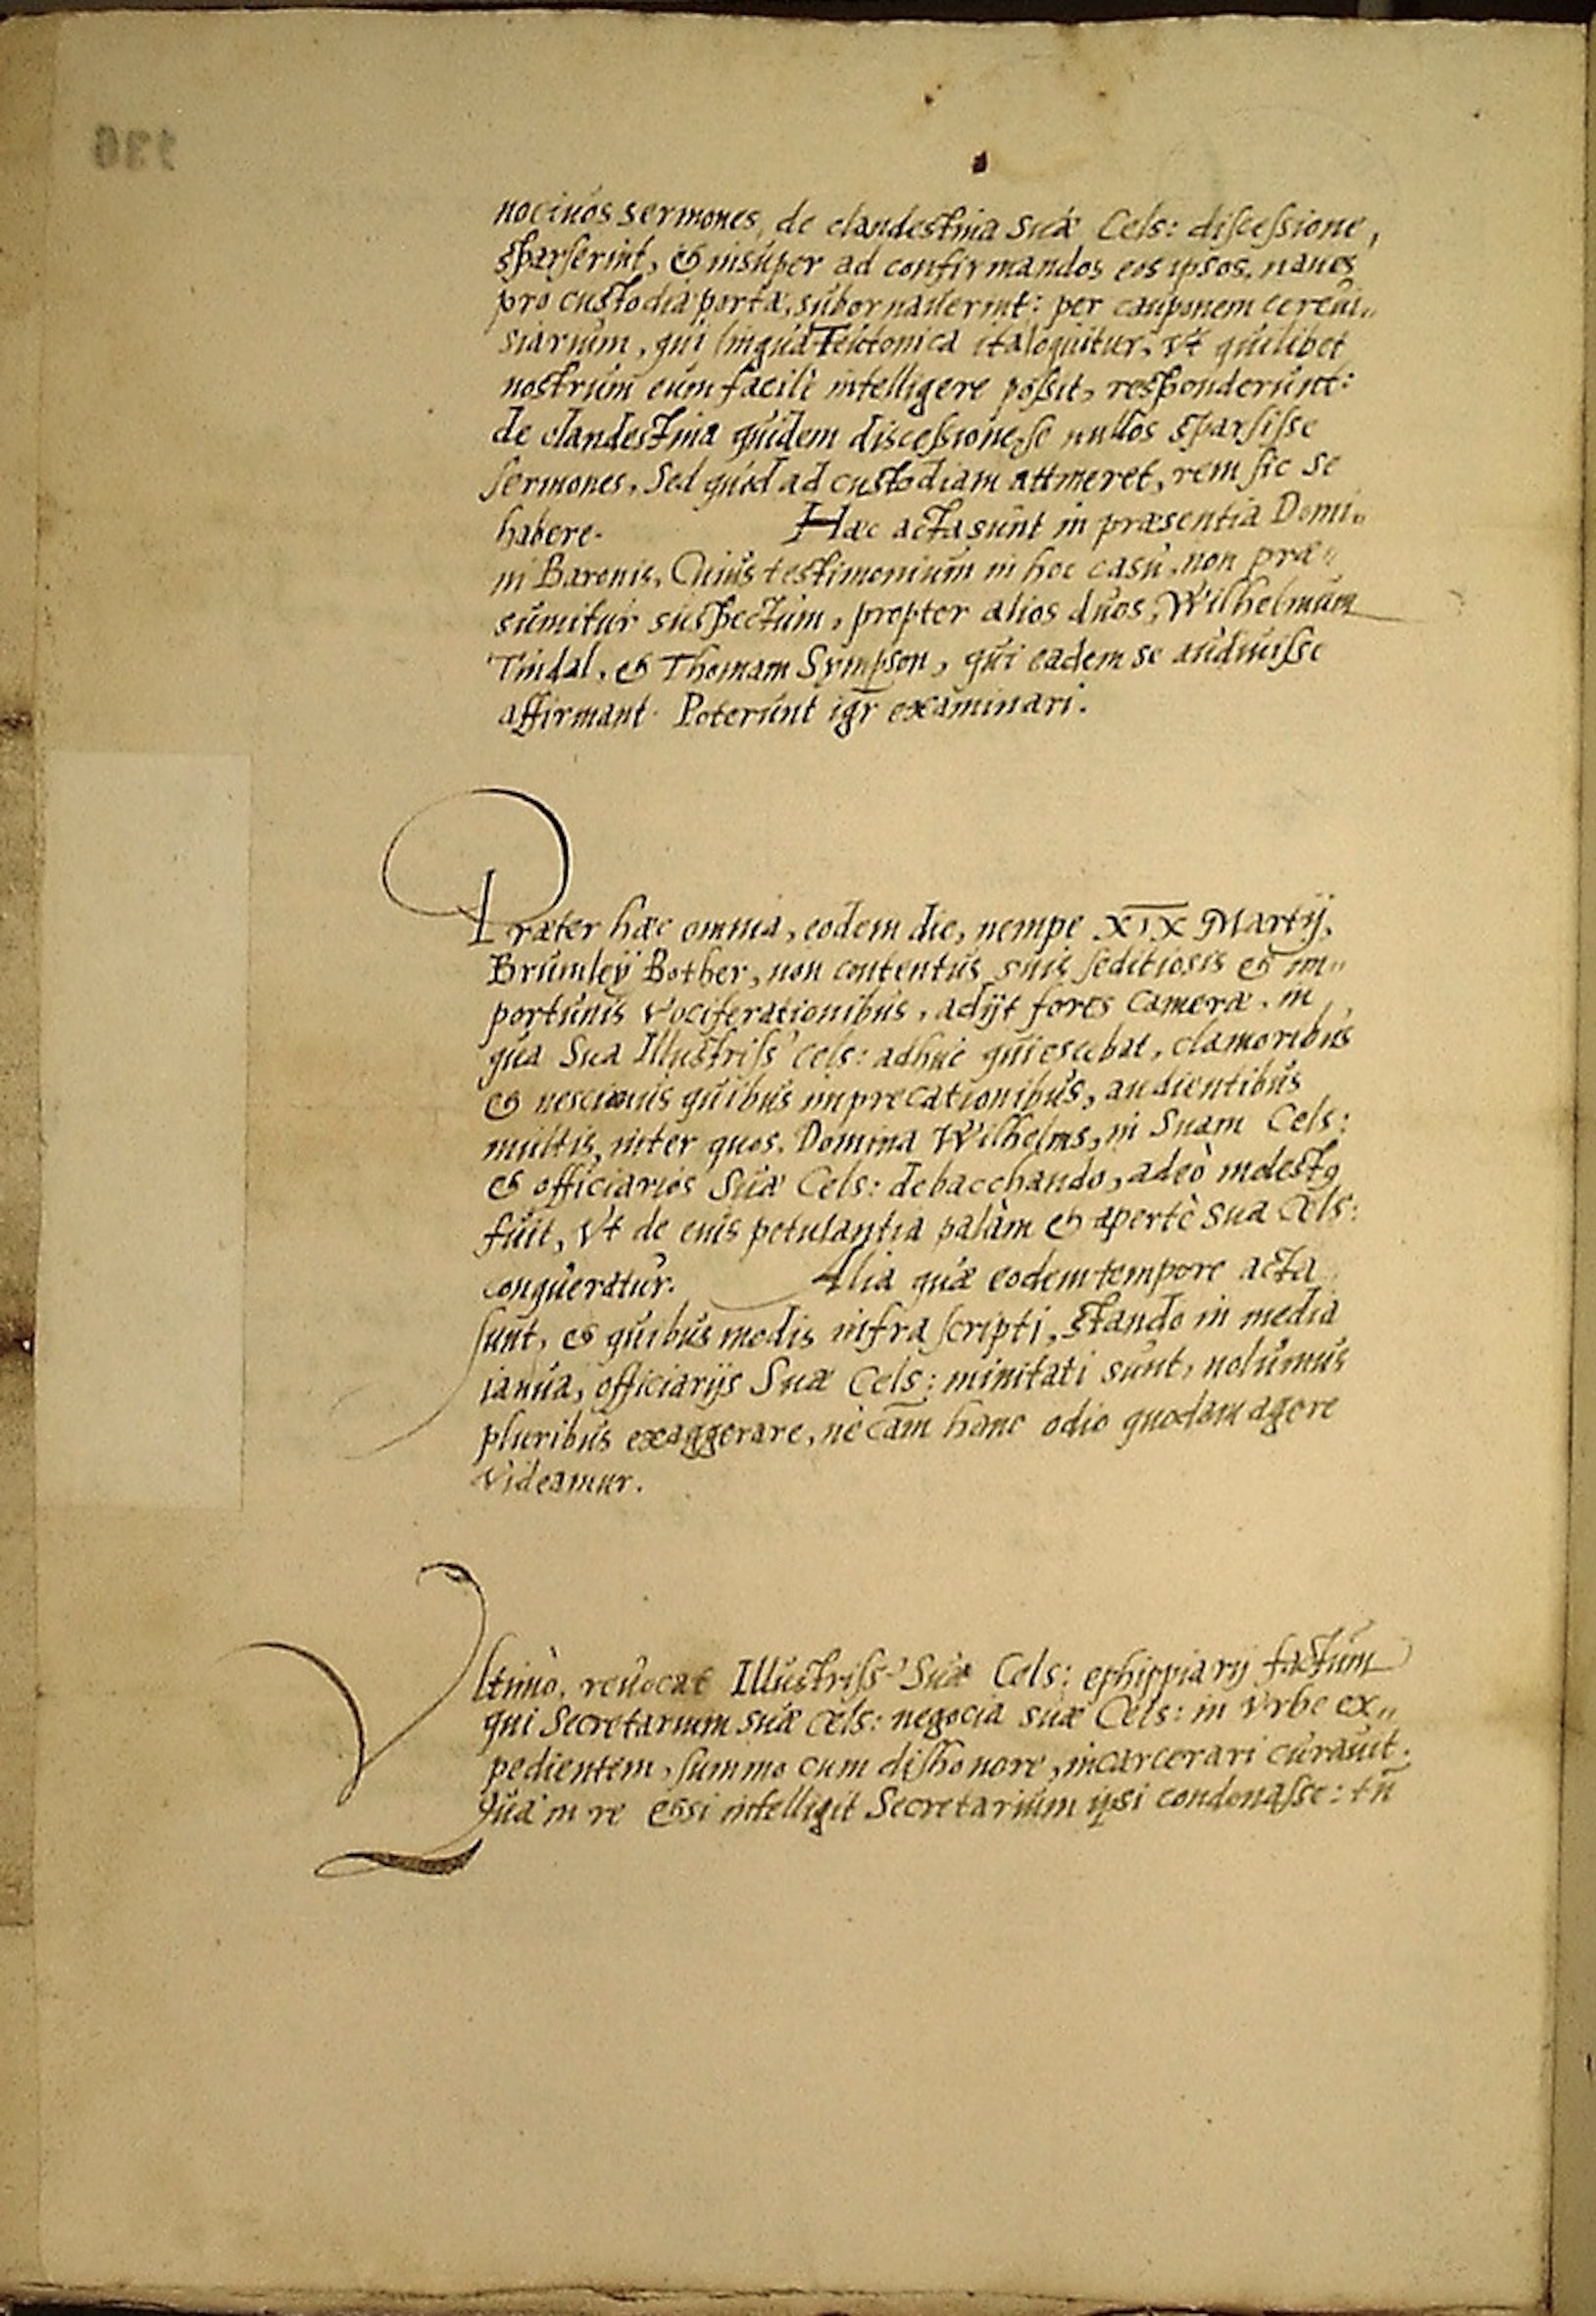 136
nociuos sermones, de clandestina Suæ Cels: discessione,
sparserint, & insuper ad confirmandos eos ipsos, naues
pro custodia portæ, subornauerint: per cauponem cereui„
siarium, qui lingua Teutonica ita loquitur, vt quilibet
nostrum eum facilè intelligere possit, responderunt:
de clandestina quidem discessione, se nullos sparsisse
sermones, Sed quod ad custodiam attineret, rem sic se
habere. Hæc acta sunt in præsentia Domi„
ni Baronis, Cuius testimonium in hoc casu, non præ„
sumitur suspectum, propter alios duos, Wilhelmum
Tindal, & Thomam Sympson, qui eadem se audiuisse
affirmant. Poterunt igr̄ examinari.
Præter hæc omnia, eodem die, nempe XIX Martij,
Brumley Bother, non contentus suis seditiosis & im„
portunis vociferationibus, adijt fores Cameræ, in
qua Sua Illustriss' Cels: adhuc quiescebat, clamoribus
& nescimus quibus imprecationibus, audientibus
multis, inter quos, Domina Wilhelms, in Suam Cels:
& officiarios Suæ Cels: debacchando, adeò molestꝰ
fuit, vt de eius petulantia palàm & apertè sua Cels:
conqueratur. Alia quæ eodem tempore acta
sunt, & quibus modis infra scripti, stando in media
ianua, officiarijs Suæ Cels: minitati sunt, nolumus
pluribus exaggerare, ne cām hanc odio quodam agere
videamur.
Vltimò, reuocat Illustriss' Sua Cels: ephippiarij factum
qui Secretarium suæ Cels: negocia suæ Cels: in vrbe ex„
pedientem, summo cum dishonore, incarcerari curauit.
Qua in re etsi intelligit Secretarium ipsi condonasse: tn̄